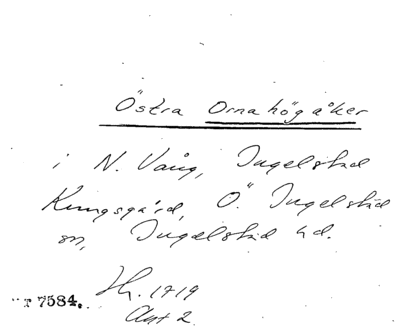 Östra Ornahögåker
i N. Vång, Ingelstad
Kungsgård, Ö. Ingelstad
sn, Ingelstad hd.
Hr. 1719
Akt 2
r 7584.